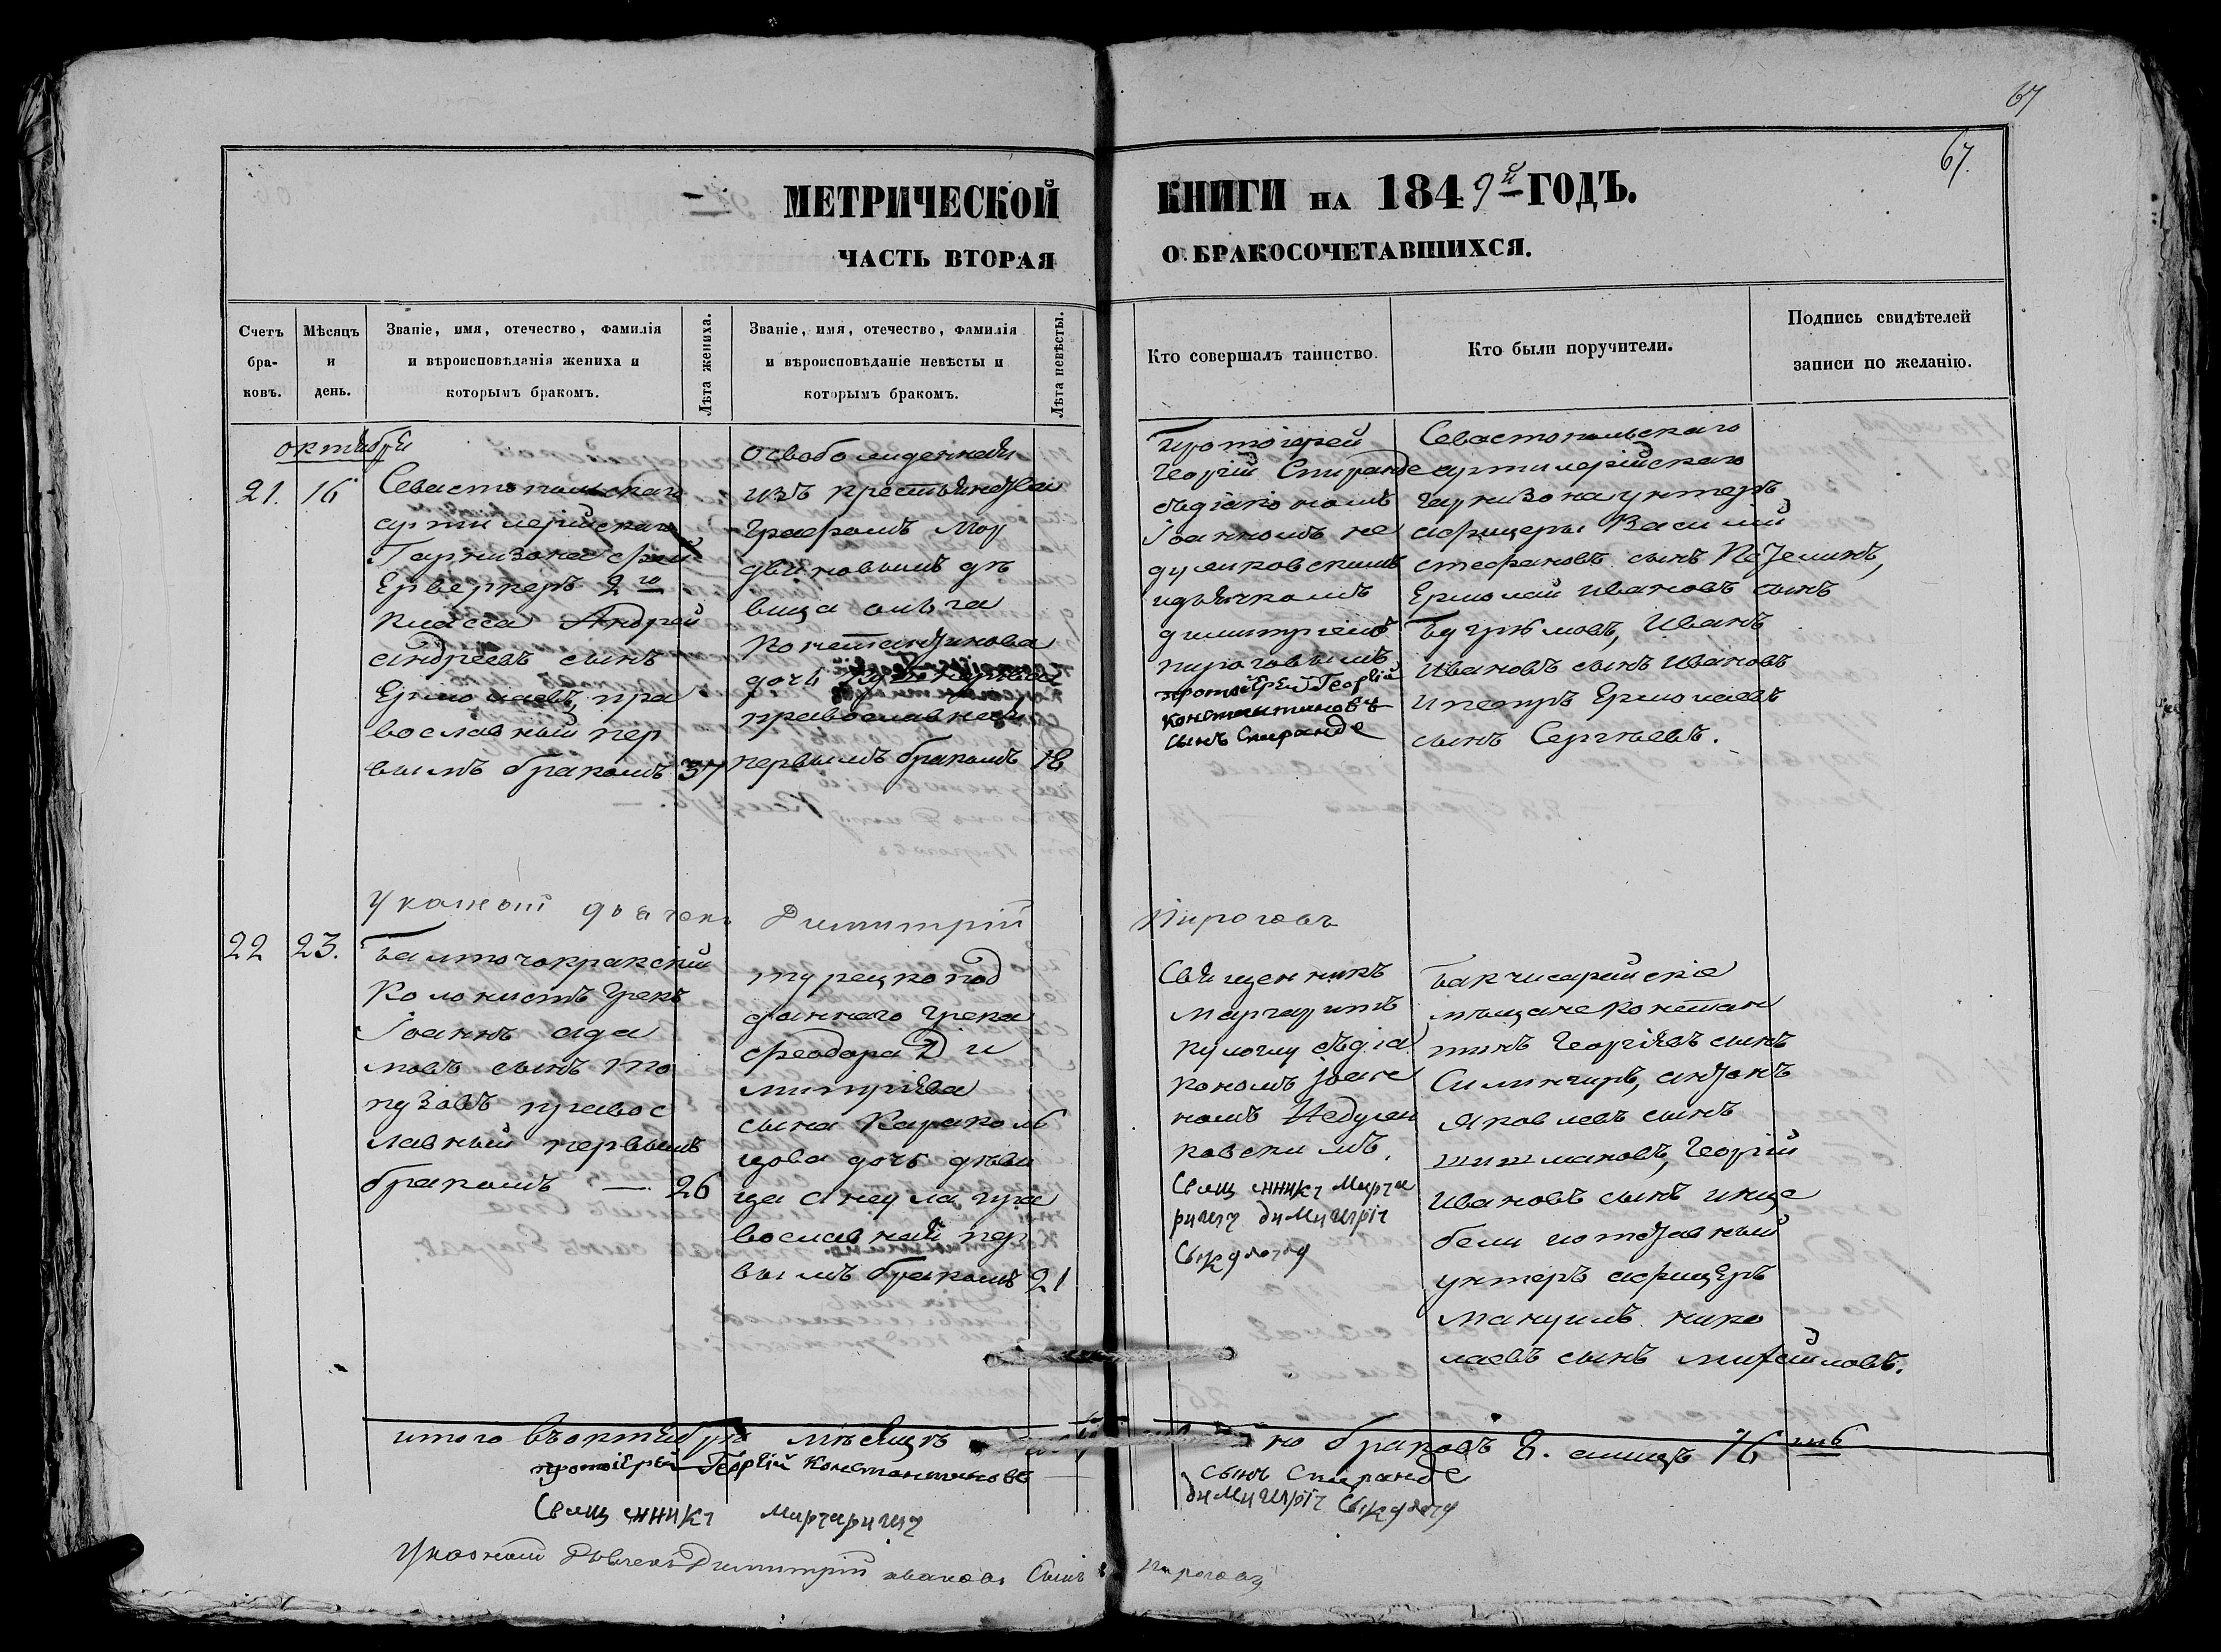 67
67.
МЕТРИЧЕСКОЙ КНИГИ НА 1849й ГОДЪ.
ЧАСТЬ ВТОРАЯ О БРАКОСОЧЕТАВШИХСЯ.
Счетъ бра-ковъ.
Мѣсяцъ и день.
Званіе, имя, отечество, фамилія
и вѣроисповѣданія жениха и
которымъ бракомъ.
Лѣта жениха.
Званіе, имя, отечество, фамилія
и вѣроисповѣданіе невѣсты и
которымъ бракомъ.
Лѣта невѣсты.
Кто совершалъ таинство.
Кто были поручители.
Подпись свидѣтелей
записи по желанію.
октября
21. 16
Севастопольскаго
артилерійскаго
Гарнизона фей
Ерверкеръ 2го
класса Андрей
Андреевъ сынъ
Ермолаевъ, пра
вославный пер
вымъ бракомъ 37
Освобожденная
изъ крестьянства
Графомъ Мор
двиновымъ дѣ
вица Ольга
Константинова
дочь
православная
первымъ бракомъ 18
Протоіерей
Георгій Спиранде
съдіакономъ
Іоанномъ не
дуликовскимъ
идьячкомъ
димитріемъ
пироговымъ
протоіерей Георгій
Константиновъ
сынъ Спиранде
Севастопольскаго
артилерійскаго
гарнизона унтеръ
афицеры Василій
стефановъ сынъ
Ермолай Ивановъ сынъ
Иванъ
Ивановъ сынъ Ивановъ
ипетръ Ермолаевъ
сынъ Сергѣевъ.
Указной дьячекъ Димитрій Пироговъ
22 23.
Балточокракскій
Колонистъ Грекъ
Іоаннъ Ада
мовъ сынъ То
пузовъ правос
лавный первымъ
бракомъ — 26
турецкопод
даннаго Грека
Феодора Ди
митріева
сына Караком
цова дочь дѣви
ца
вославная пер
вымъ бракомъ 21
Священникъ
Маргаритъ
съдіа
кономъ Іоан
номъ Недули
ковскимъ.
Священникъ Марга
ритъ димитріи
Бакчисарайскіе
мещане Констан
тинъ Георгіевъ сынъ
Антонъ
Яковлевъ сынъ
Шишмановъ, Георгій
Ивановъ сынъ
бели иотставный
унтеръ афицеръ
Мануилъ нико
лаевъ сынъ михайловъ.
итого въоктябрѣ мѣсяцѣ но браковъ 8. алицъ 16ть
протоіерей Георгій Константиновъ сынъ Спиранде
Священникъ Маргаритъ димитріи
Указной Дьячекъ Димитрій Ивановъ Сынъ Пироговъ